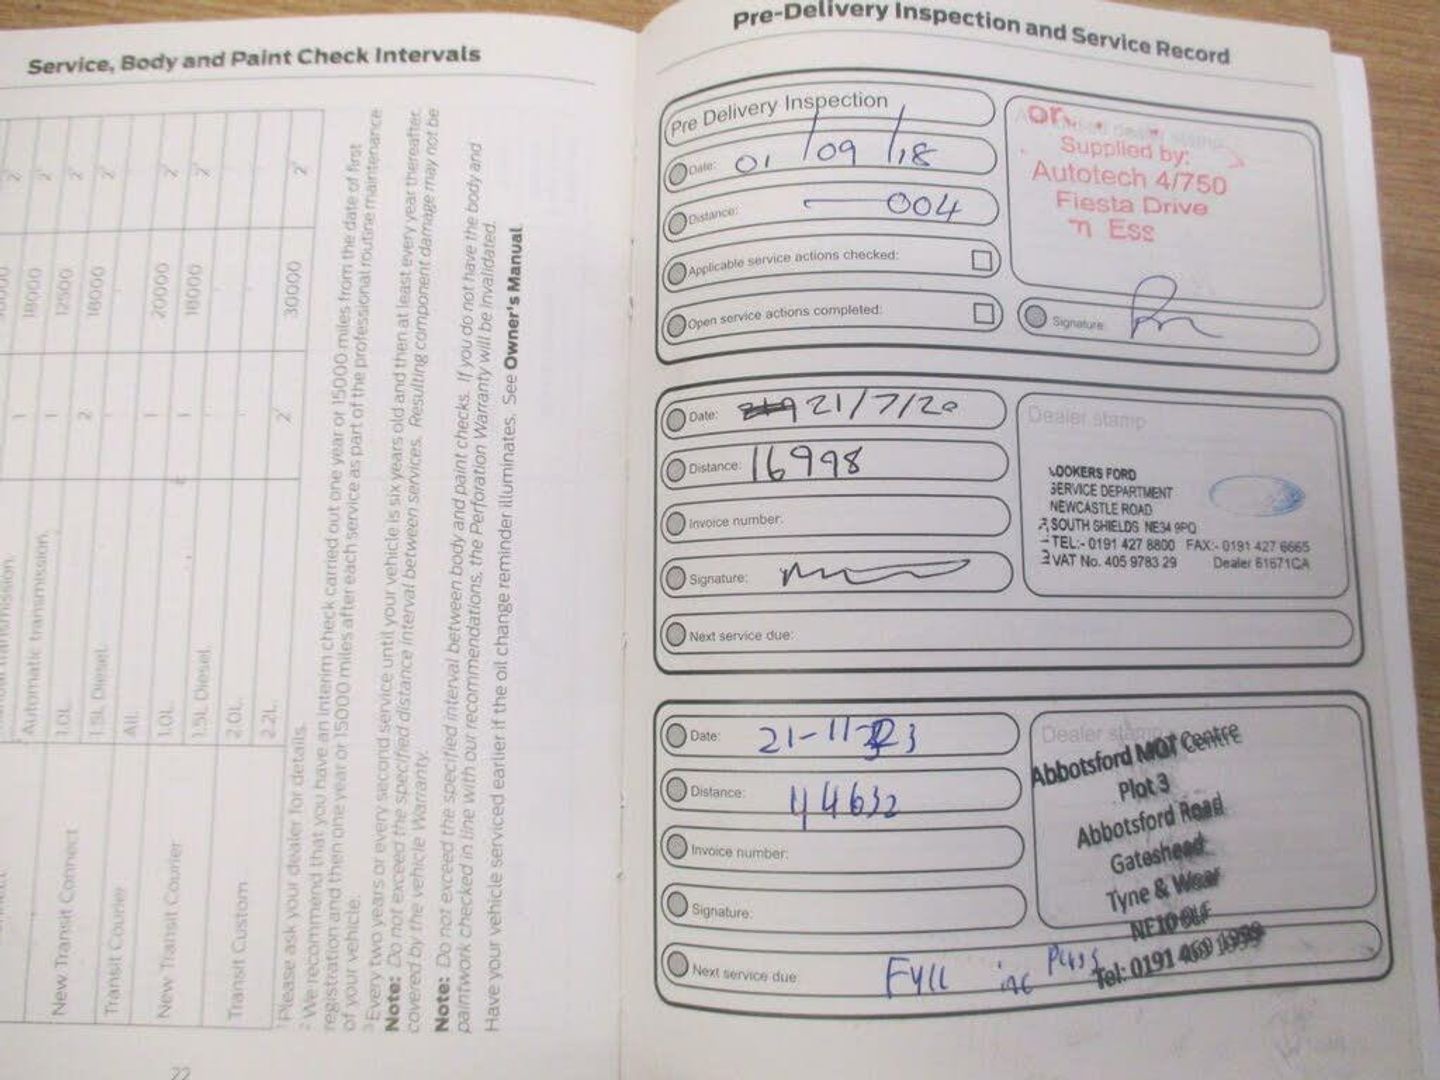 Service, Body and Paint Check Intervals
Automatic transmission. 1 18000 2
1.0L. 1 12500 2
1.5L Diesel. 2 18000 2
All.
1.0L. 1 20000 2
1.5L Diesel. 1 18000 2
2.0L.
2.2L. 2 30000 2
New Transit Connect
Transit Courier
New Transit Courier
Transit Custom
1 Please ask your dealer for details.
2 We recommend that you have an interim check carried out one year or 15000 miles from the date of first
registration and then one year or 15000 miles after each service as part of the professional routine maintenance
of your vehicle.
3 Every two years or every second service until your vehicle is six years old and then at least every year thereafter.
Note: Do not exceed the specified distance interval between services. Resulting component damage may not be
covered by the vehicle Warranty.
Note: Do not exceed the specified interval between body and paint checks. If you do not have the body and
paintwork checked in line with our recommendations, the Perforation Warranty will be invalidated.
Have your vehicle serviced earlier if the oil change reminder illuminates. See Owner's Manual.
22
Pre-Delivery Inspection and Service Record
Pre Delivery Inspection
Date: 01/09/18
Distance: 004
Applicable service actions checked:
Open service actions completed:
Supplied by:
Autotech 4/750
Fiesta Drive
Ess
Signature:
Date: 21/7/20
Distance: 16998
Invoice number:
Signature:
Next service due:
Dealer stamp
LOOKERS FORD
SERVICE DEPARTMENT
NEWCASTLE ROAD
SOUTH SHIELDS NE34 9PQ
TEL:- 0191 427 8800 FAX:- 0191 427 6665
VAT No. 405 9783 29 Dealer 61671CA
Date: 21-11-23
Distance: 44632
Invoice number:
Signature:
Next service due Fyll inc
Dealer stamp
Abbotsford MOT Centre
Plot 3
Abbotsford Road
Gateshead
Tyne & Wear
NE10 0LF
Tel: 0191 469 1999